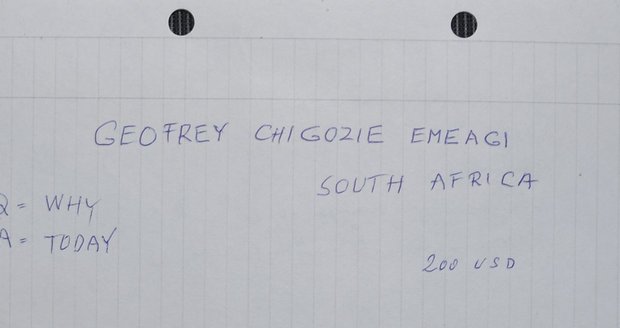 GEOFREY CHIGOZIE EMEAGI
SOUTH AFRICA
Q = WHY
A = TODAY
200 USD